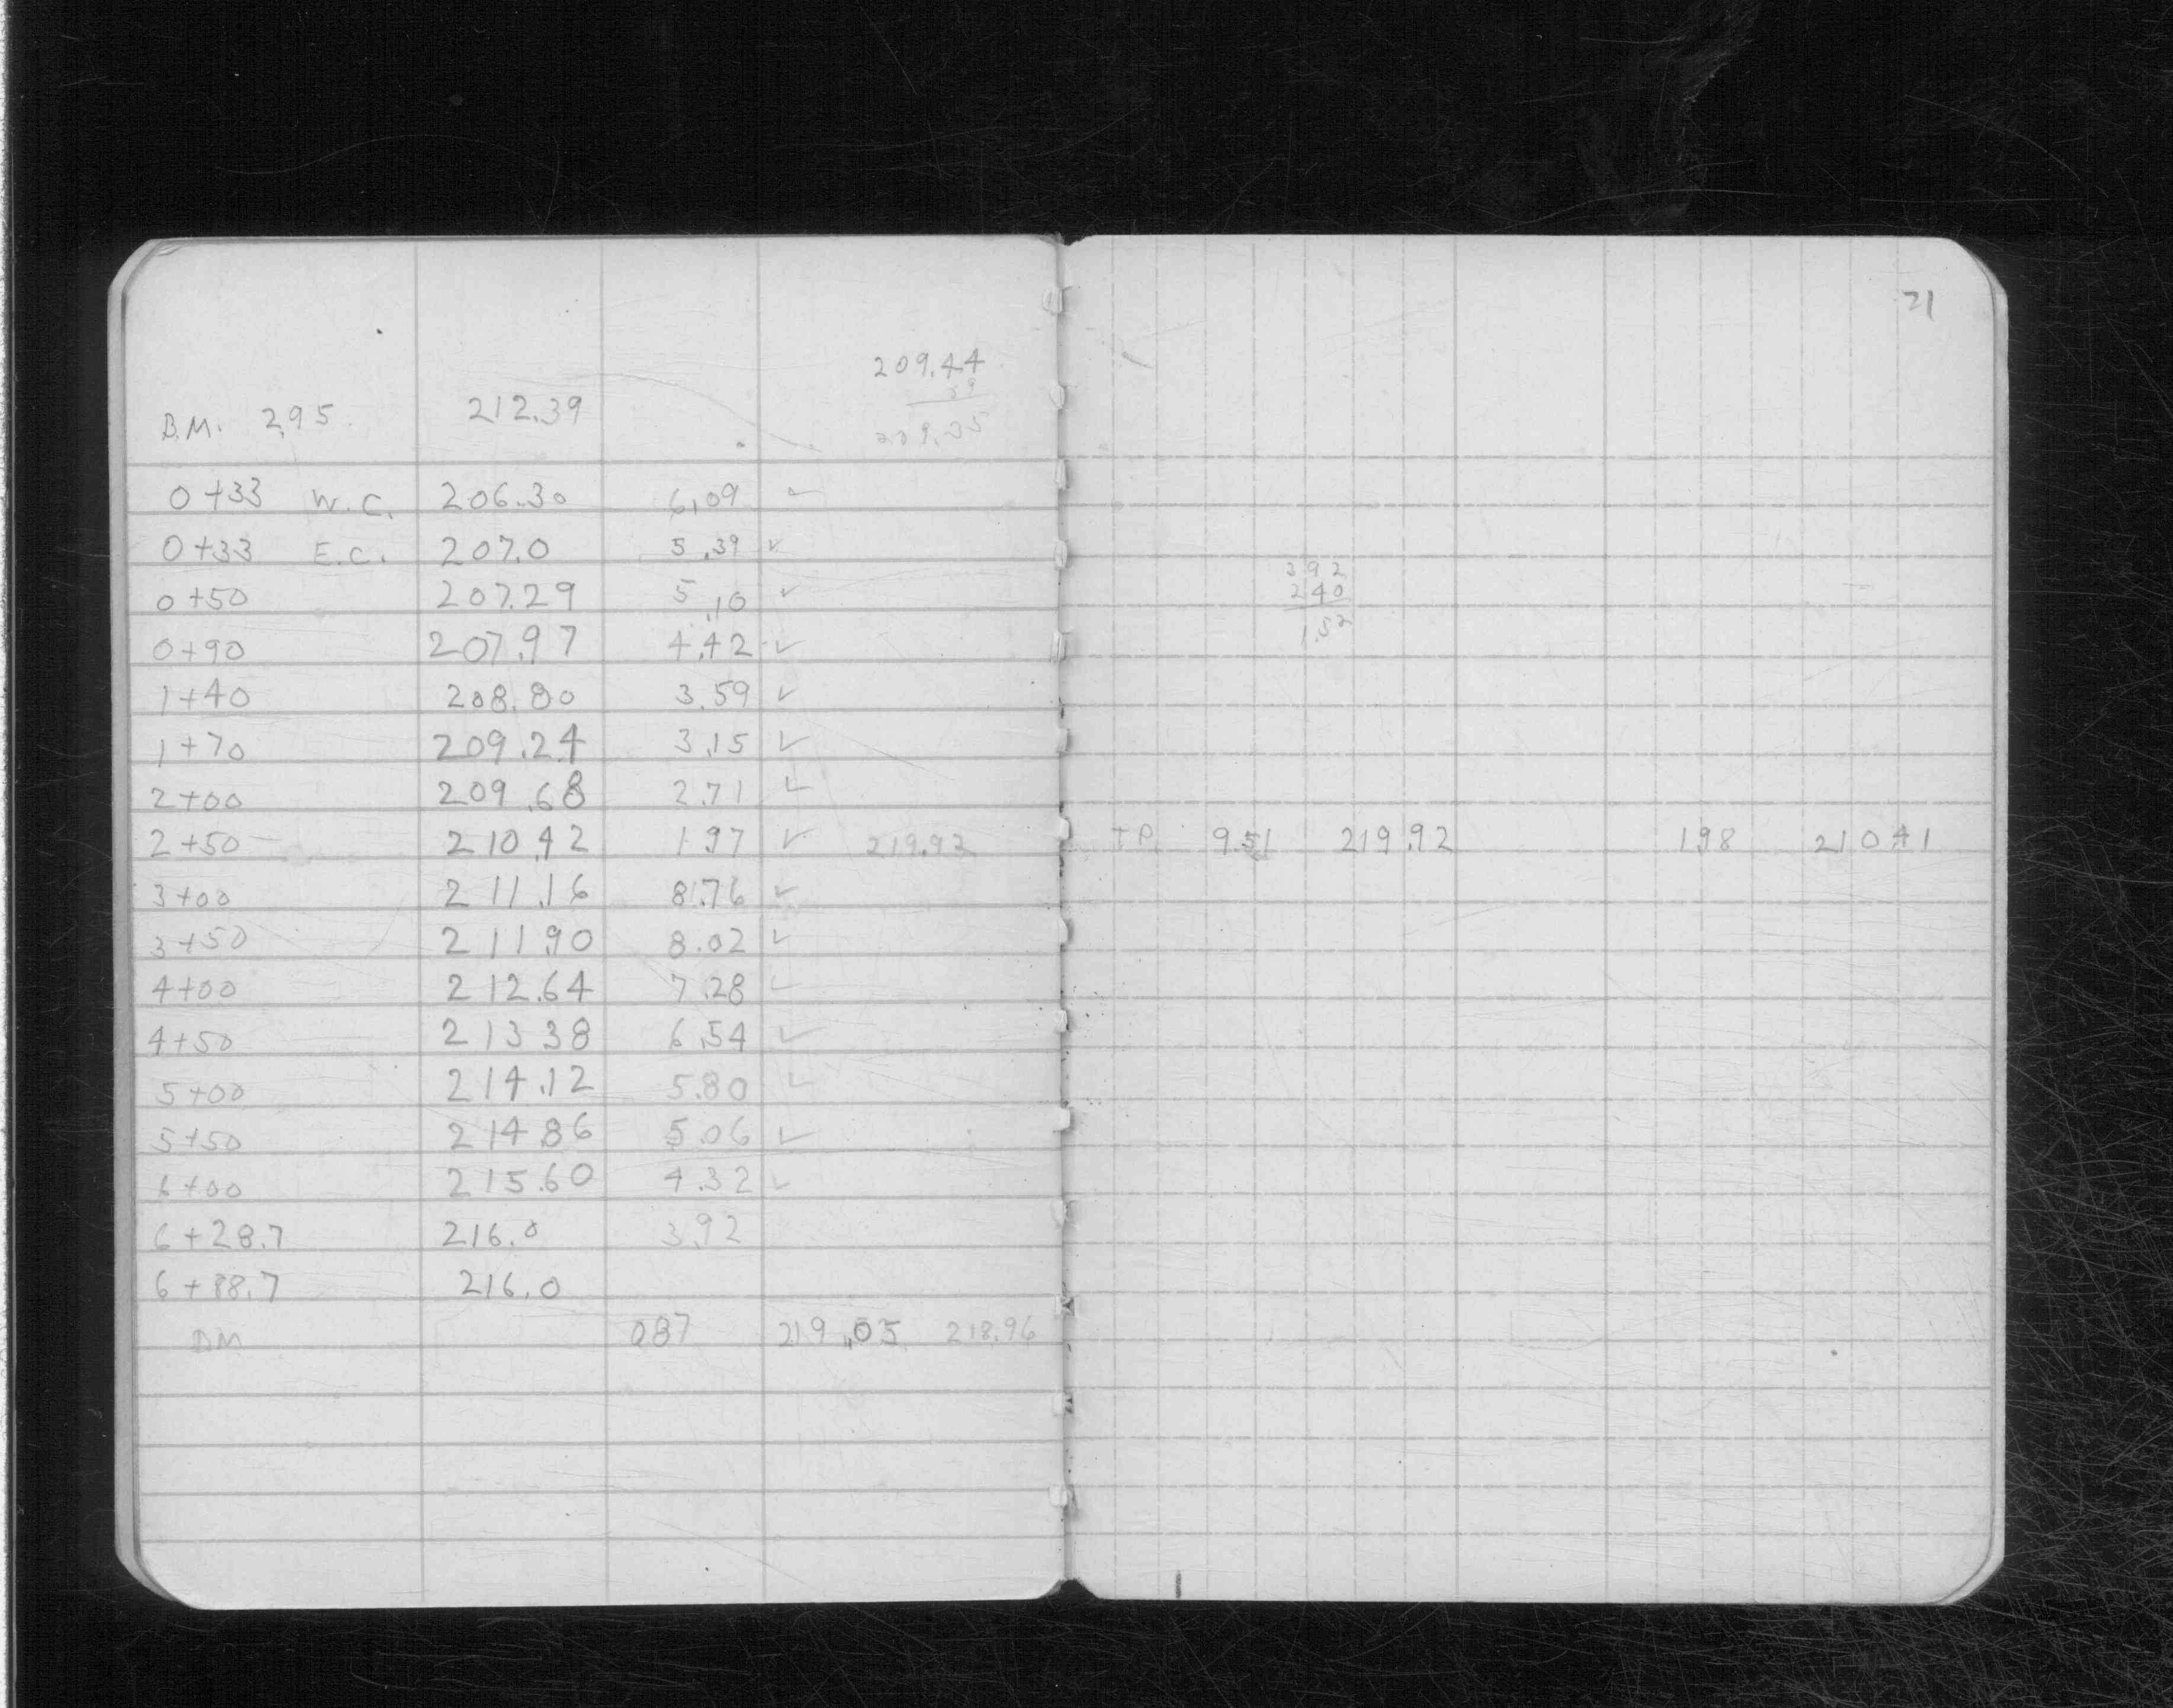 209.44
39
209.35
B.M. 2.95 212.39
0+33 W.C. 206.30 6.09 ✓
0+33 E.C. 207.0 5.39 ✓
0+50 207.29 5.10 ✓
0+90 207.97 4.42 ✓
1+40 208.80 3.59 ✓
1+70 209.24 3.15 ✓
2+00 209.68 2.71 ✓
2+50 210.42 1.97 ✓ 219.92
3+00 211.16 8.76 ✓
3+50 211.90 8.02 ✓
4+00 212.64 7.28 ✓
4+50 213.38 6.54 ✓
5+00 214.12 5.80 ✓
5+50 214.86 5.06 ✓
6+00 215.60 4.32 ✓
6+28.7 216.0 3.92
6+88.7 216.0
BM 087 219.05 218.96
21
392
240
1.52
T.P. 9.51 219.92 1.98 210.41